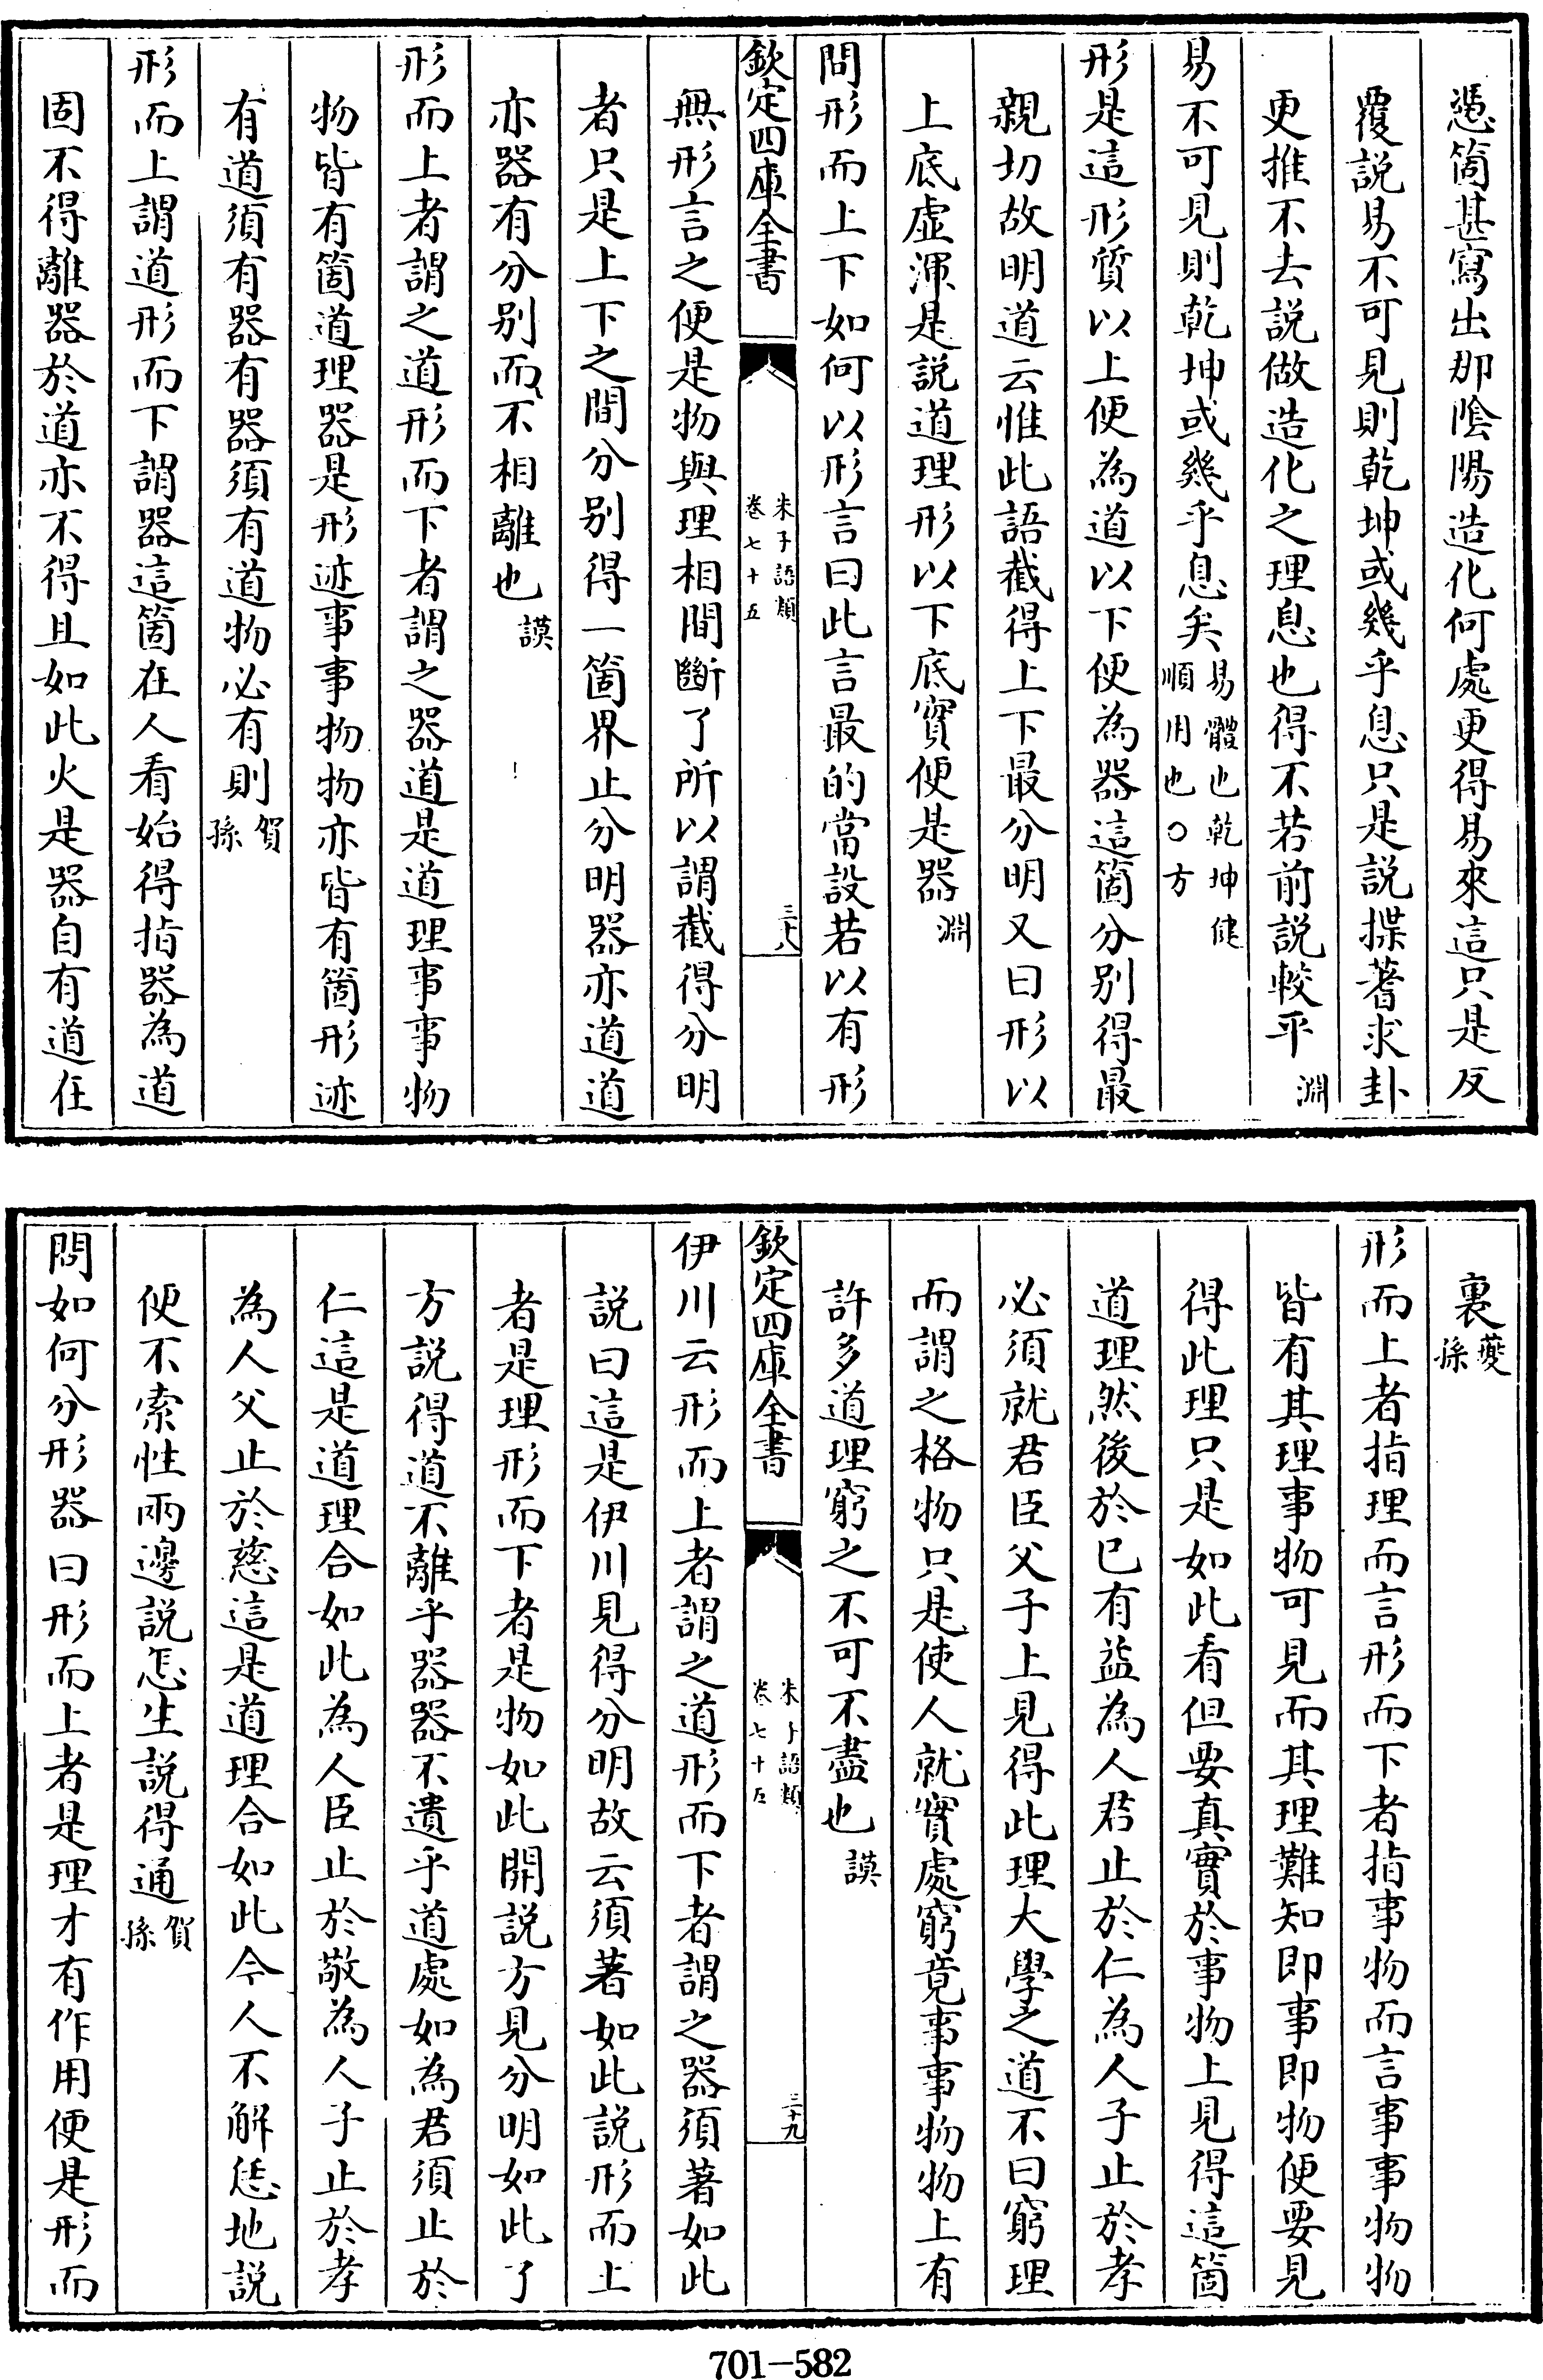 憑箇甚寫出那陰陽造化何處更得易來這只是反
覆説易不可見則乾坤或幾乎息只是説揲蓍求卦
更推不去説做造化之理息也得不若前説較平淵
易不可見則乾坤或幾乎息矣易體也乾坤健順用也〇方
形是這形質以上便為道以下便為器這箇分别得最
親切故明道云惟此語截得上下最分明又曰形以
上底虛渾是説道理形以下底實便是器淵
問形而上下如何以形言曰此言最的當設若以有形
欽定四庫全書
朱子語類
卷七十五
三十八
無形言之便是物與理相間斷了所以謂截得分明
者只是上下之間分别得一箇界止分明器亦道道
亦器有分别而不相離也謨
形而上者謂之道形而下者謂之器道是道理事事物
物皆有箇道理器是形迹事事物物亦皆有箇形迹
有道須有器有器須有道物必有則賀孫
形而上謂道形而下謂器這箇在人看始得指器為道
固不得離器於道亦不得且如此火是器自有道在
裏夔孫
形而上者指理而言形而下者指事物而言事事物物
皆有其理事物可見而其理難知即事即物便要見
得此理只是如此看但要真實於事物上見得這箇
道理然後於已有益為人君止於仁為人子止於孝
必須就君臣父子上見得此理大學之道不曰窮理
而謂之格物只是使人就實處窮竟事事物物上有
許多道理窮之不可不盡也謨
欽定四庫全書
朱子語類
卷七十五
三十九
伊川云形而上者謂之道形而下者謂之器須著如此
説曰這是伊川見得分明故云須著如此説形而上
者是理形而下者是物如此開説方見分明如此了
方説得道不離乎器器不遺乎道處如為君須止於
仁這是道理合如此為人臣止於敬為人子止於孝
為人父止於慈這是道理合如此今人不解恁地説
便不索性兩邊説怎生説得通賀孫
問如何分形器曰形而上者是理才有作用便是形而
701-582